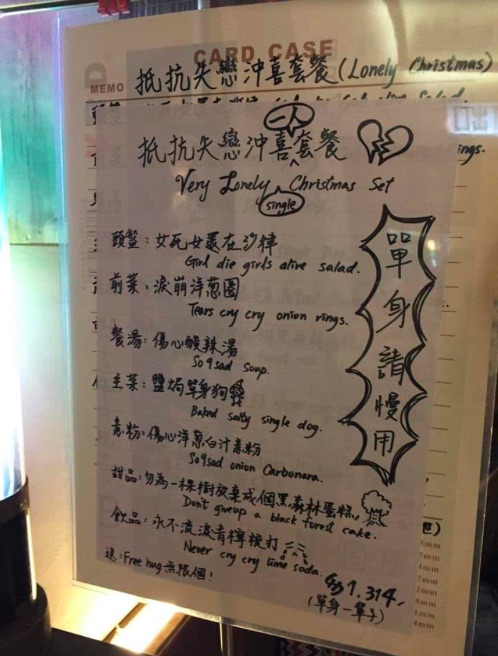 CARD CASE
MEMO
抵抗失戀沖喜套餐(Lonely Christmas)
一人
抵抗失戀沖喜套餐
Very Lonely Christmas Set
single
頭盤：女死女還在沙律
Girl die girls alive salad.
前菜：淚崩洋蔥圈
Tears cry cry onion rings.
餐湯：傷心酸辣湯
So9sad soup.
主菜：鹽焗單身狗
Baked salty single dog.
意粉：傷心洋蔥白汁意粉
So9sad onion Carbonara.
甜品：勿為一棵樹放棄成個黑森林蛋糕
Don't giveup a black forest cake.
飲品：永不流淚青檸梳打
Never cry cry lime soda.
送：Free hug 無限個！
$1,314
(單身一輩子)
單身請慢用